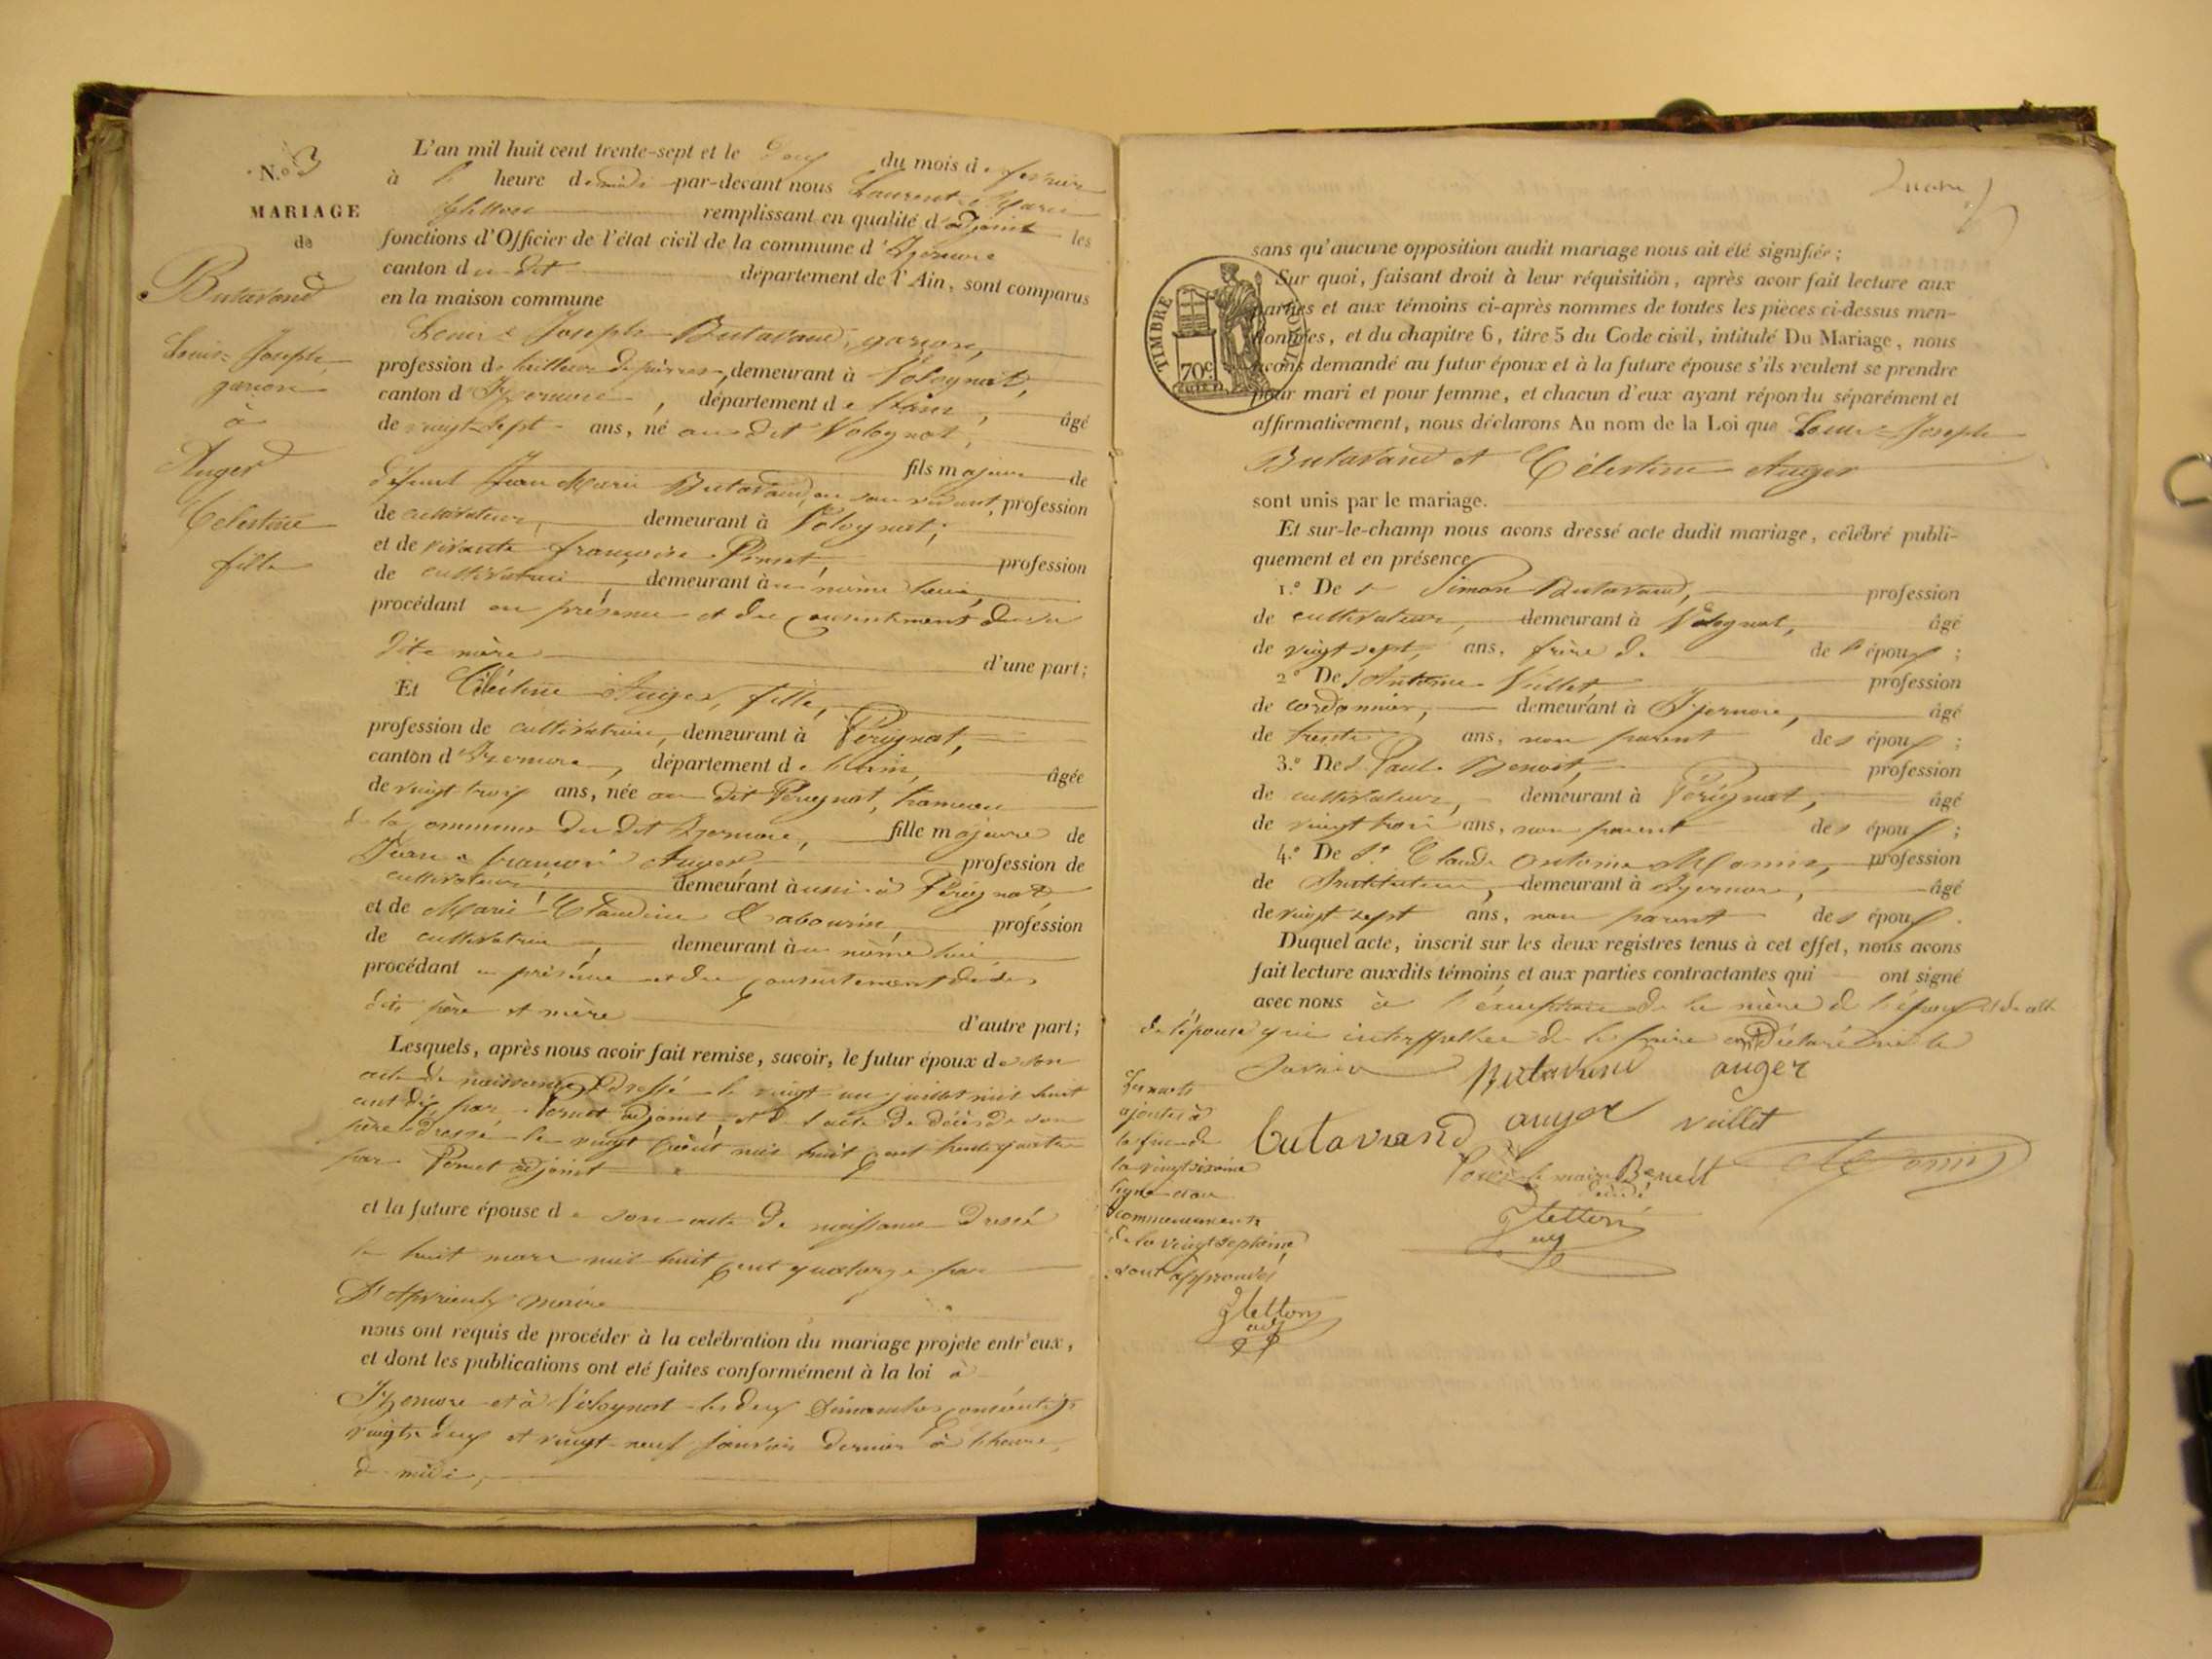 N.o 3
MARIAGE
de
Butavand
Louis-Joseph
garçon
à
Auger
Celestine
fille
L'an mil huit cent trente-sept et le deux du mois de fevrier
à l' heure de midi par-devant nous Laurent Marie
remplissant en qualité d'adjoint les
fonctions d'Officier de l'état civil de la commune d'Izernore
canton du dit département de l'Ain, sont comparus
en la maison commune
Louis Joseph Butavand, garçon,
profession de tailleur de pierres, demeurant à Volognat,
canton d'Izernore, département de l'ain, âgé
de vingt-sept ans, né au dit Volognat,
fils majeur de
défunt Jean Marie Butavand, en son vivant, profession
de cultivateur, demeurant à Volognat,
et de vivante françoise Pernet, profession
de cultivatrice, demeurant au même lieu,
procédant en présence et du consentement de sa
dite mère d'une part;
Et Célestine Auger, fille,
profession de cultivatrice, demeurant à Perignat,
canton d'Izernore, département de l'ain, âgée
de vingt trois ans, née au dit Perignat, hameau
de la commune du dit Izernore, fille majeure de
Jean françois Auger profession de
cultivateur, demeurant aussi à Perignat,
et de Marie Claudine Cabourin, profession
de cultivatrice, demeurant au même lieu,
procédant en présence et du consentement de ses
dits père et mère d'autre part;
Lesquels, après nous avoir fait remise, savoir, le futur époux de son
acte de naissance dressé le vingt un juillet mil huit
cent dix par Pernet adjoint, et de l'acte de décès de son
père dressé le vingt août mil huit cent trente quatre
par Pernet adjoint
et la future épouse de son acte de naissance dressé
le huit mars mil huit cent quatorze par
maire
nous ont requis de procéder à la celébration du mariage projeté entr'eux,
et dont les publications ont eté faites conformément à la loi à
Izernore et à Volognat les deux dimanches consécutifs
vingt deux et vingt-neuf janvier dernier à l'heure
de midi,
TIMBRE ROYAL
70c.
sans qu'aucune opposition audit mariage nous ait été signifiée;
Sur quoi, faisant droit à leur réquisition, après avoir fait lecture aux
parties et aux témoins ci-après nommes de toutes les pièces ci-dessus men-
tionnées, et du chapitre 6, titre 5 du Code civil, intitulé Du Mariage, nous
avons demandé au futur époux et à la future épouse s'ils veulent se prendre
pour mari et pour femme, et chacun d'eux ayant répondu séparément et
affirmativement, nous déclarons Au nom de la Loi que Louis-Joseph
Butavand et Célestine Auger
sont unis par le mariage.
Et sur-le-champ nous avons dressé acte dudit mariage, célébré publi-
quement et en présence
1.o De s Simon Butavand, profession
de cultivateur, demeurant à Volognat, âgé
de vingt sept, ans, frère de de l'époux;
2o De s Antoine Vuillet, profession
de cordonnier, demeurant à Izernore, âgé
de trente ans, non parent des époux;
3.o De s. Paul Benoit, profession
de cultivateur, demeurant à Pérignat, âgé
de vingt trois ans, non parent des époux;
4.o De s.r Claude antoine profession
de Instituteur, demeurant à Izernore, âgé
de vingt sept ans, non parent des époux.
Duquel acte, inscrit sur les deux registres tenus à cet effet, nous avons
fait lecture auxdits témoins et aux parties contractantes qui ont signé
avec nous à l'exception de la mère de l'époux et de celle
de l'épouse qui interpellées de le faire ont déclaré ne le
savoir
Butavand auger
Butavand auger vuillet
Pour le maire Benoit
Les mots
ajoutés à
la fin de
la vingt sixième
ligne et au
commencement
de la vingt septième
sont approuvés